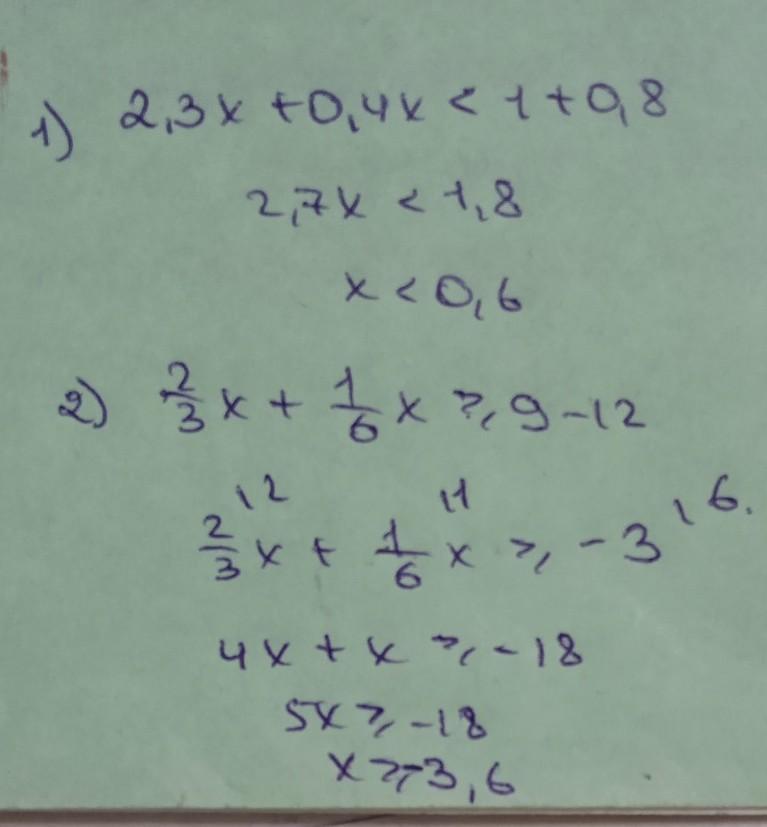 1) 2,3x + 0,4x < 1 + 0,8
2,7x < 1,8
x < 0,6
2) 2/3 x + 1/6 x ⩾ 9 - 12
2/3 x \2 + 1/6 x \1 ⩾ -3 \6.
4x + x ⩾ -18
5x ⩾ -18
x ⩾ -3,6